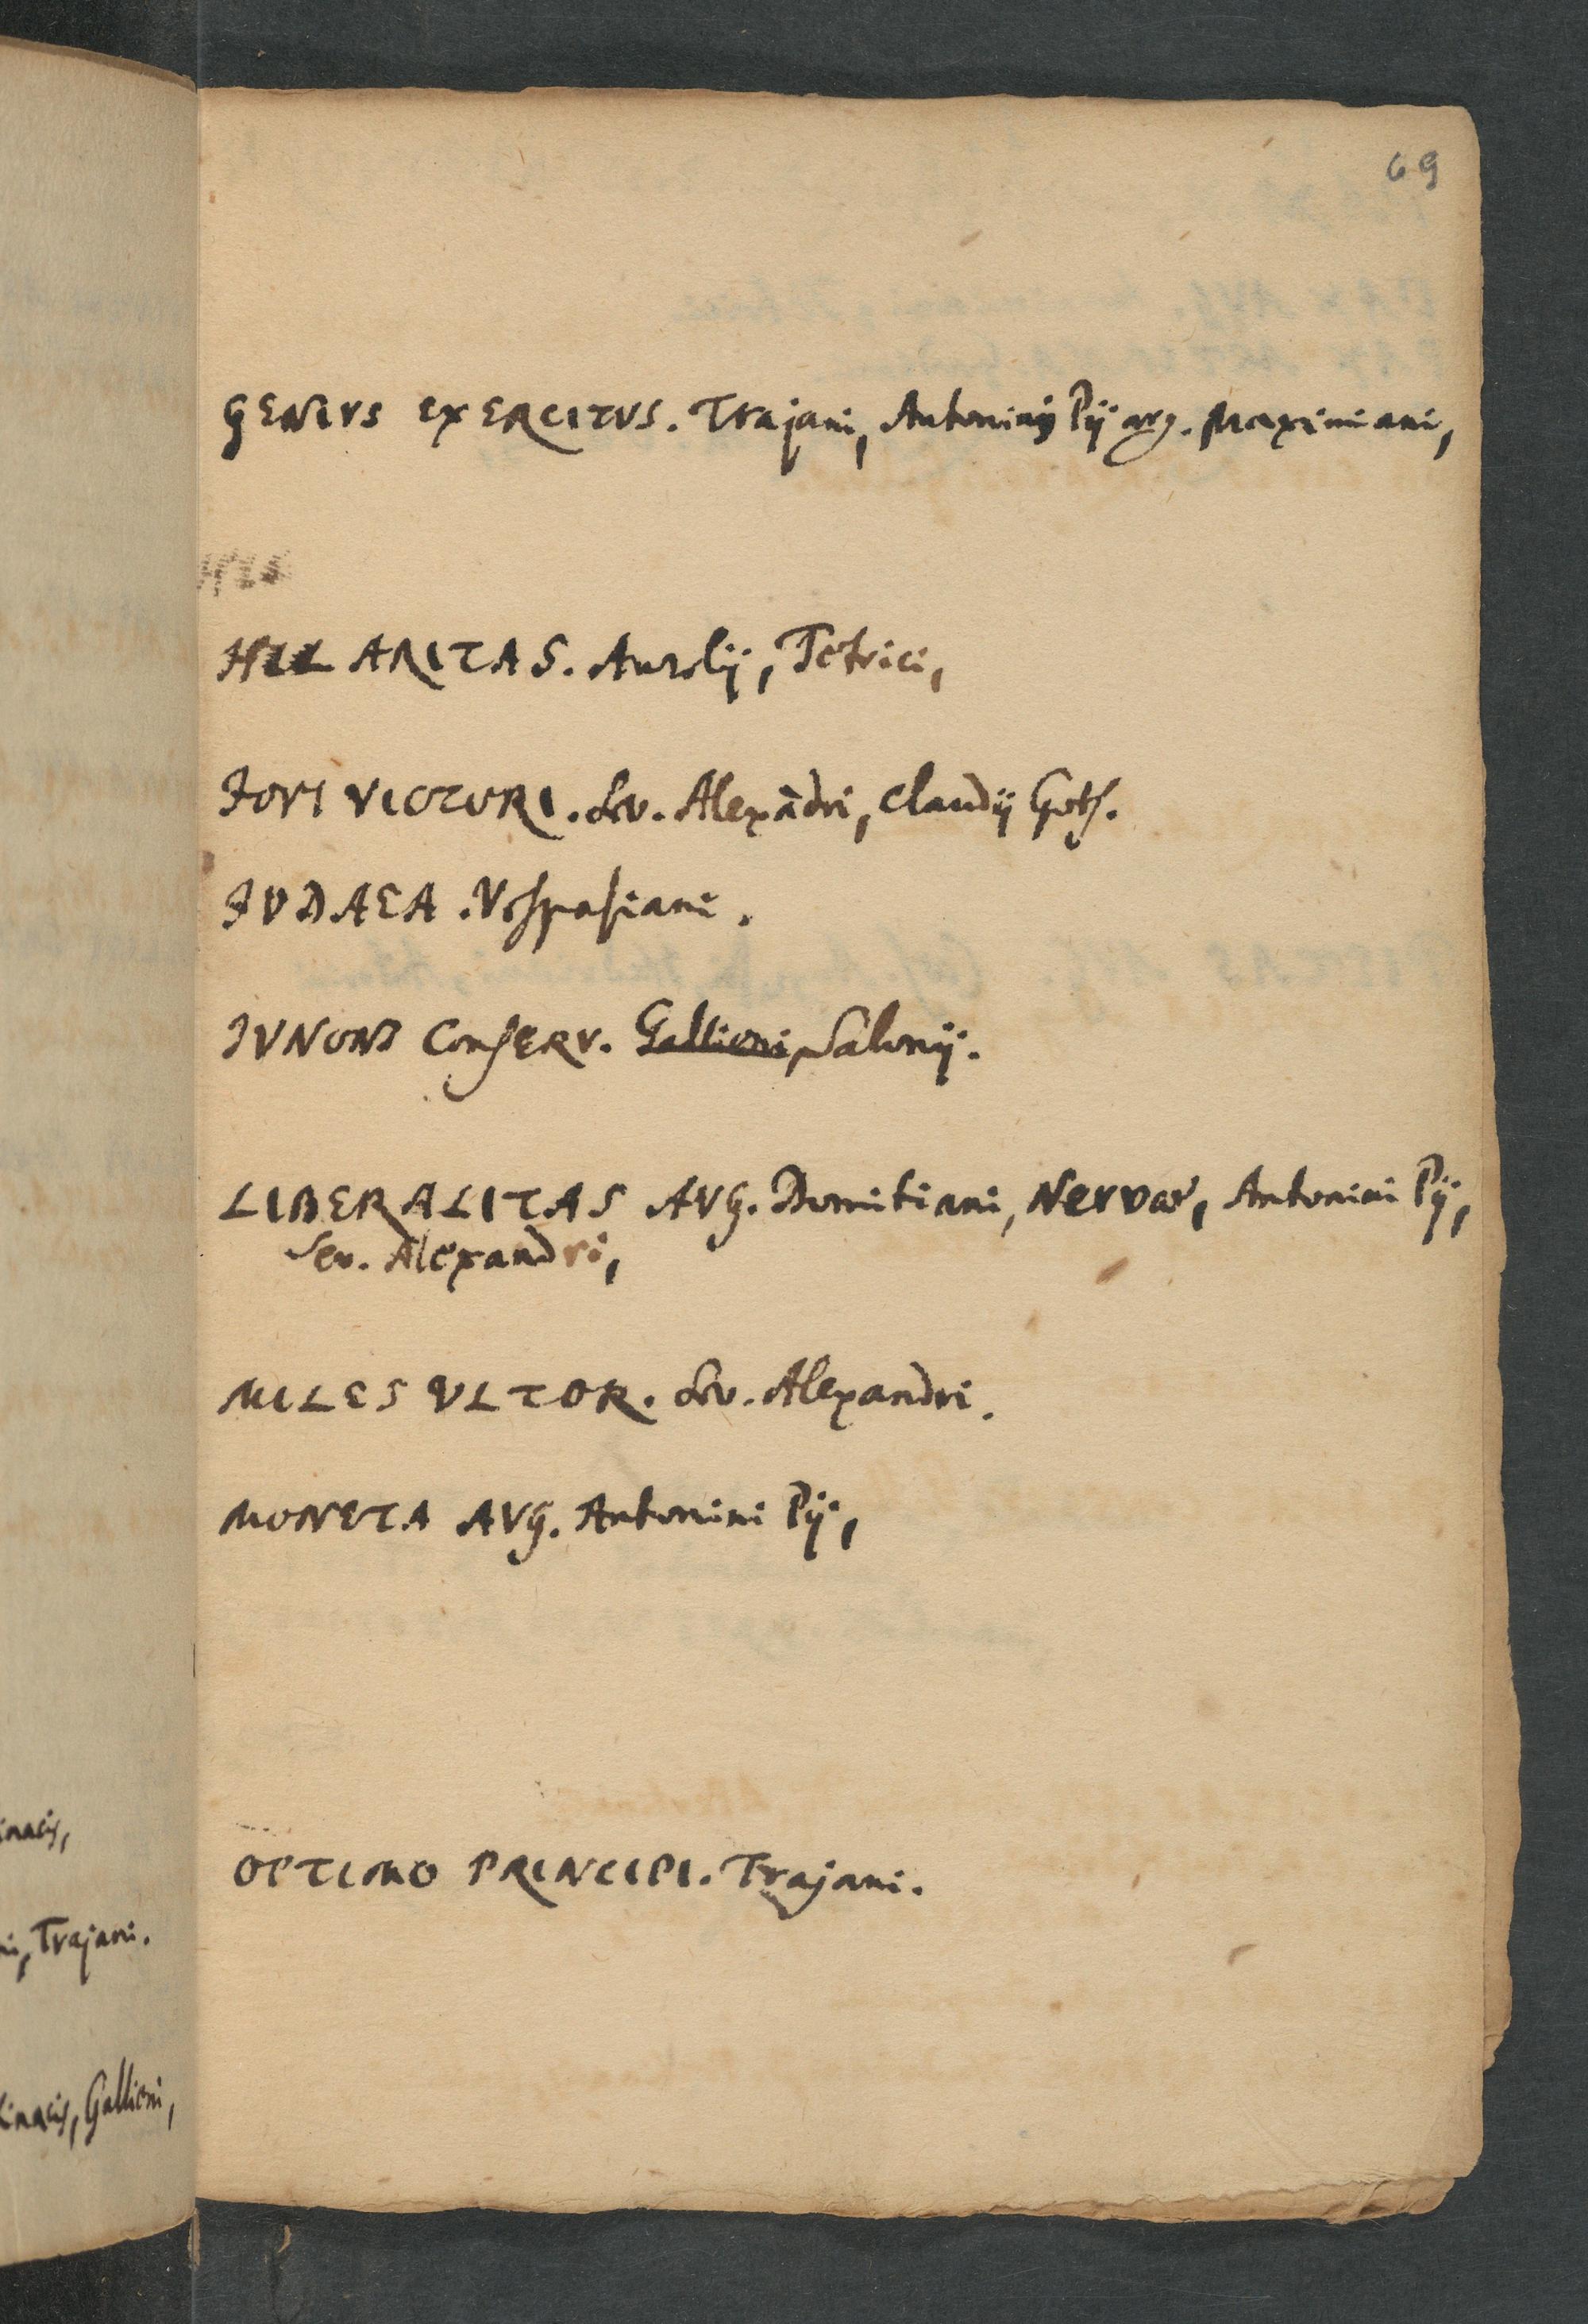 69
GENIVS EXERCITVS. Trajani, Antonini Pij arg. Maximiani,
HIL
HILARITAS. Aurelij, Tetrici,
JOVI VICTORI. Sev. Alexãdri, Claudij Goth.
JVDAEA. Vespasiani.
JVNONI ConSERV. Gallieni, Salonij.
LIBERALITAS AVG. Domitiani, Nervae, Antonini Pij,
Sev. Alexandri,
MILES VLTOR. Sev. Alexandri.
MONETA AVG. Antonini Pij,
OPTIMO PRINCIPI. Trajani.
Trajani.
Gallieni,